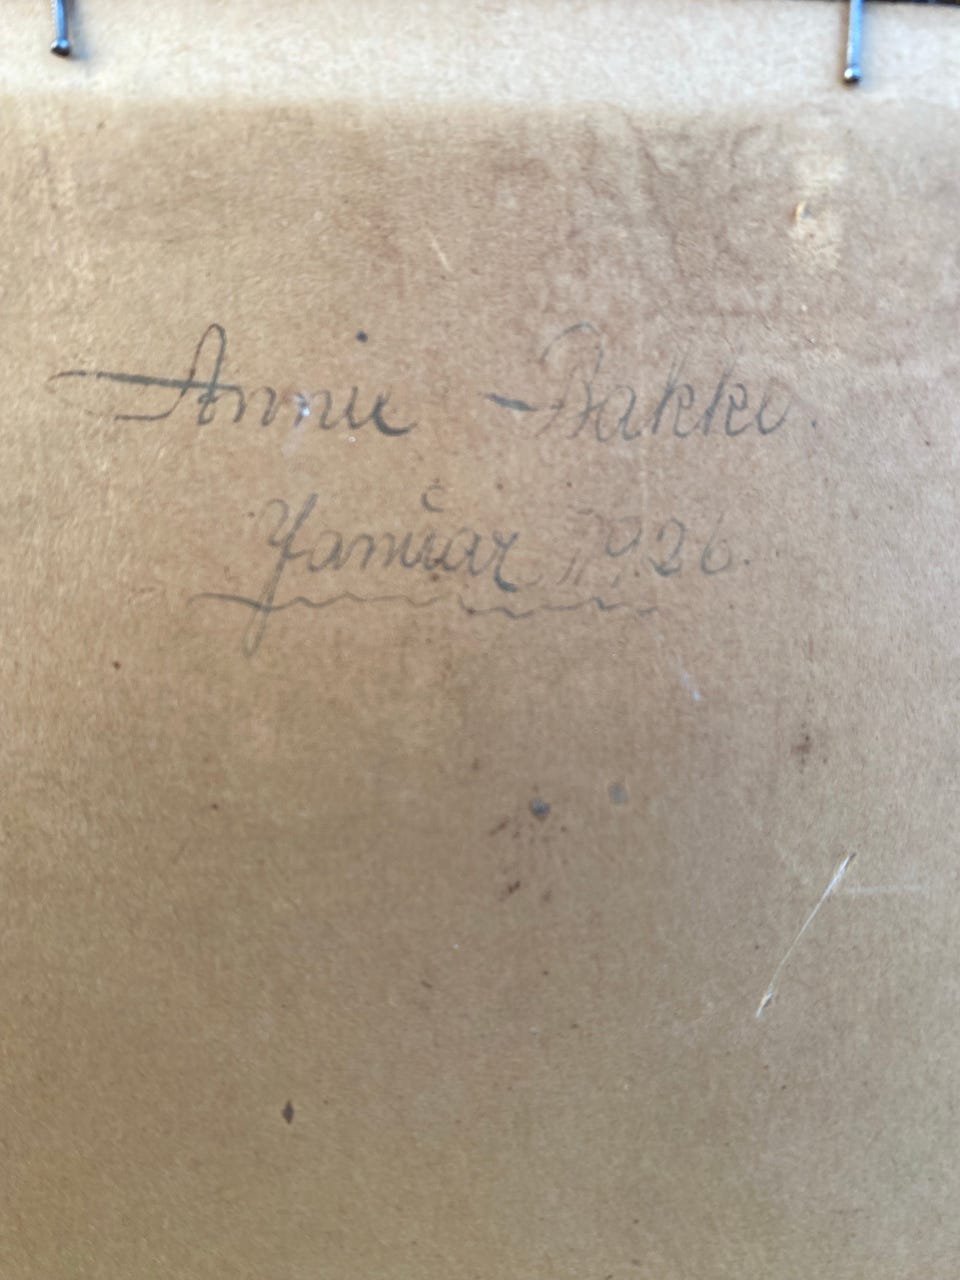 Annie Bakke.
Januar 1926.